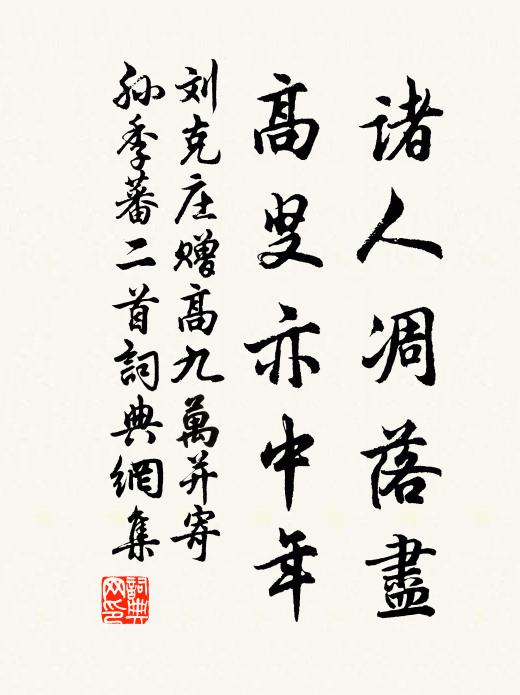 诸人凋落盡
高叟亦中年
刘克庄赠高九萬并寄
孫季蕃二首詞典網集
詞典
网印